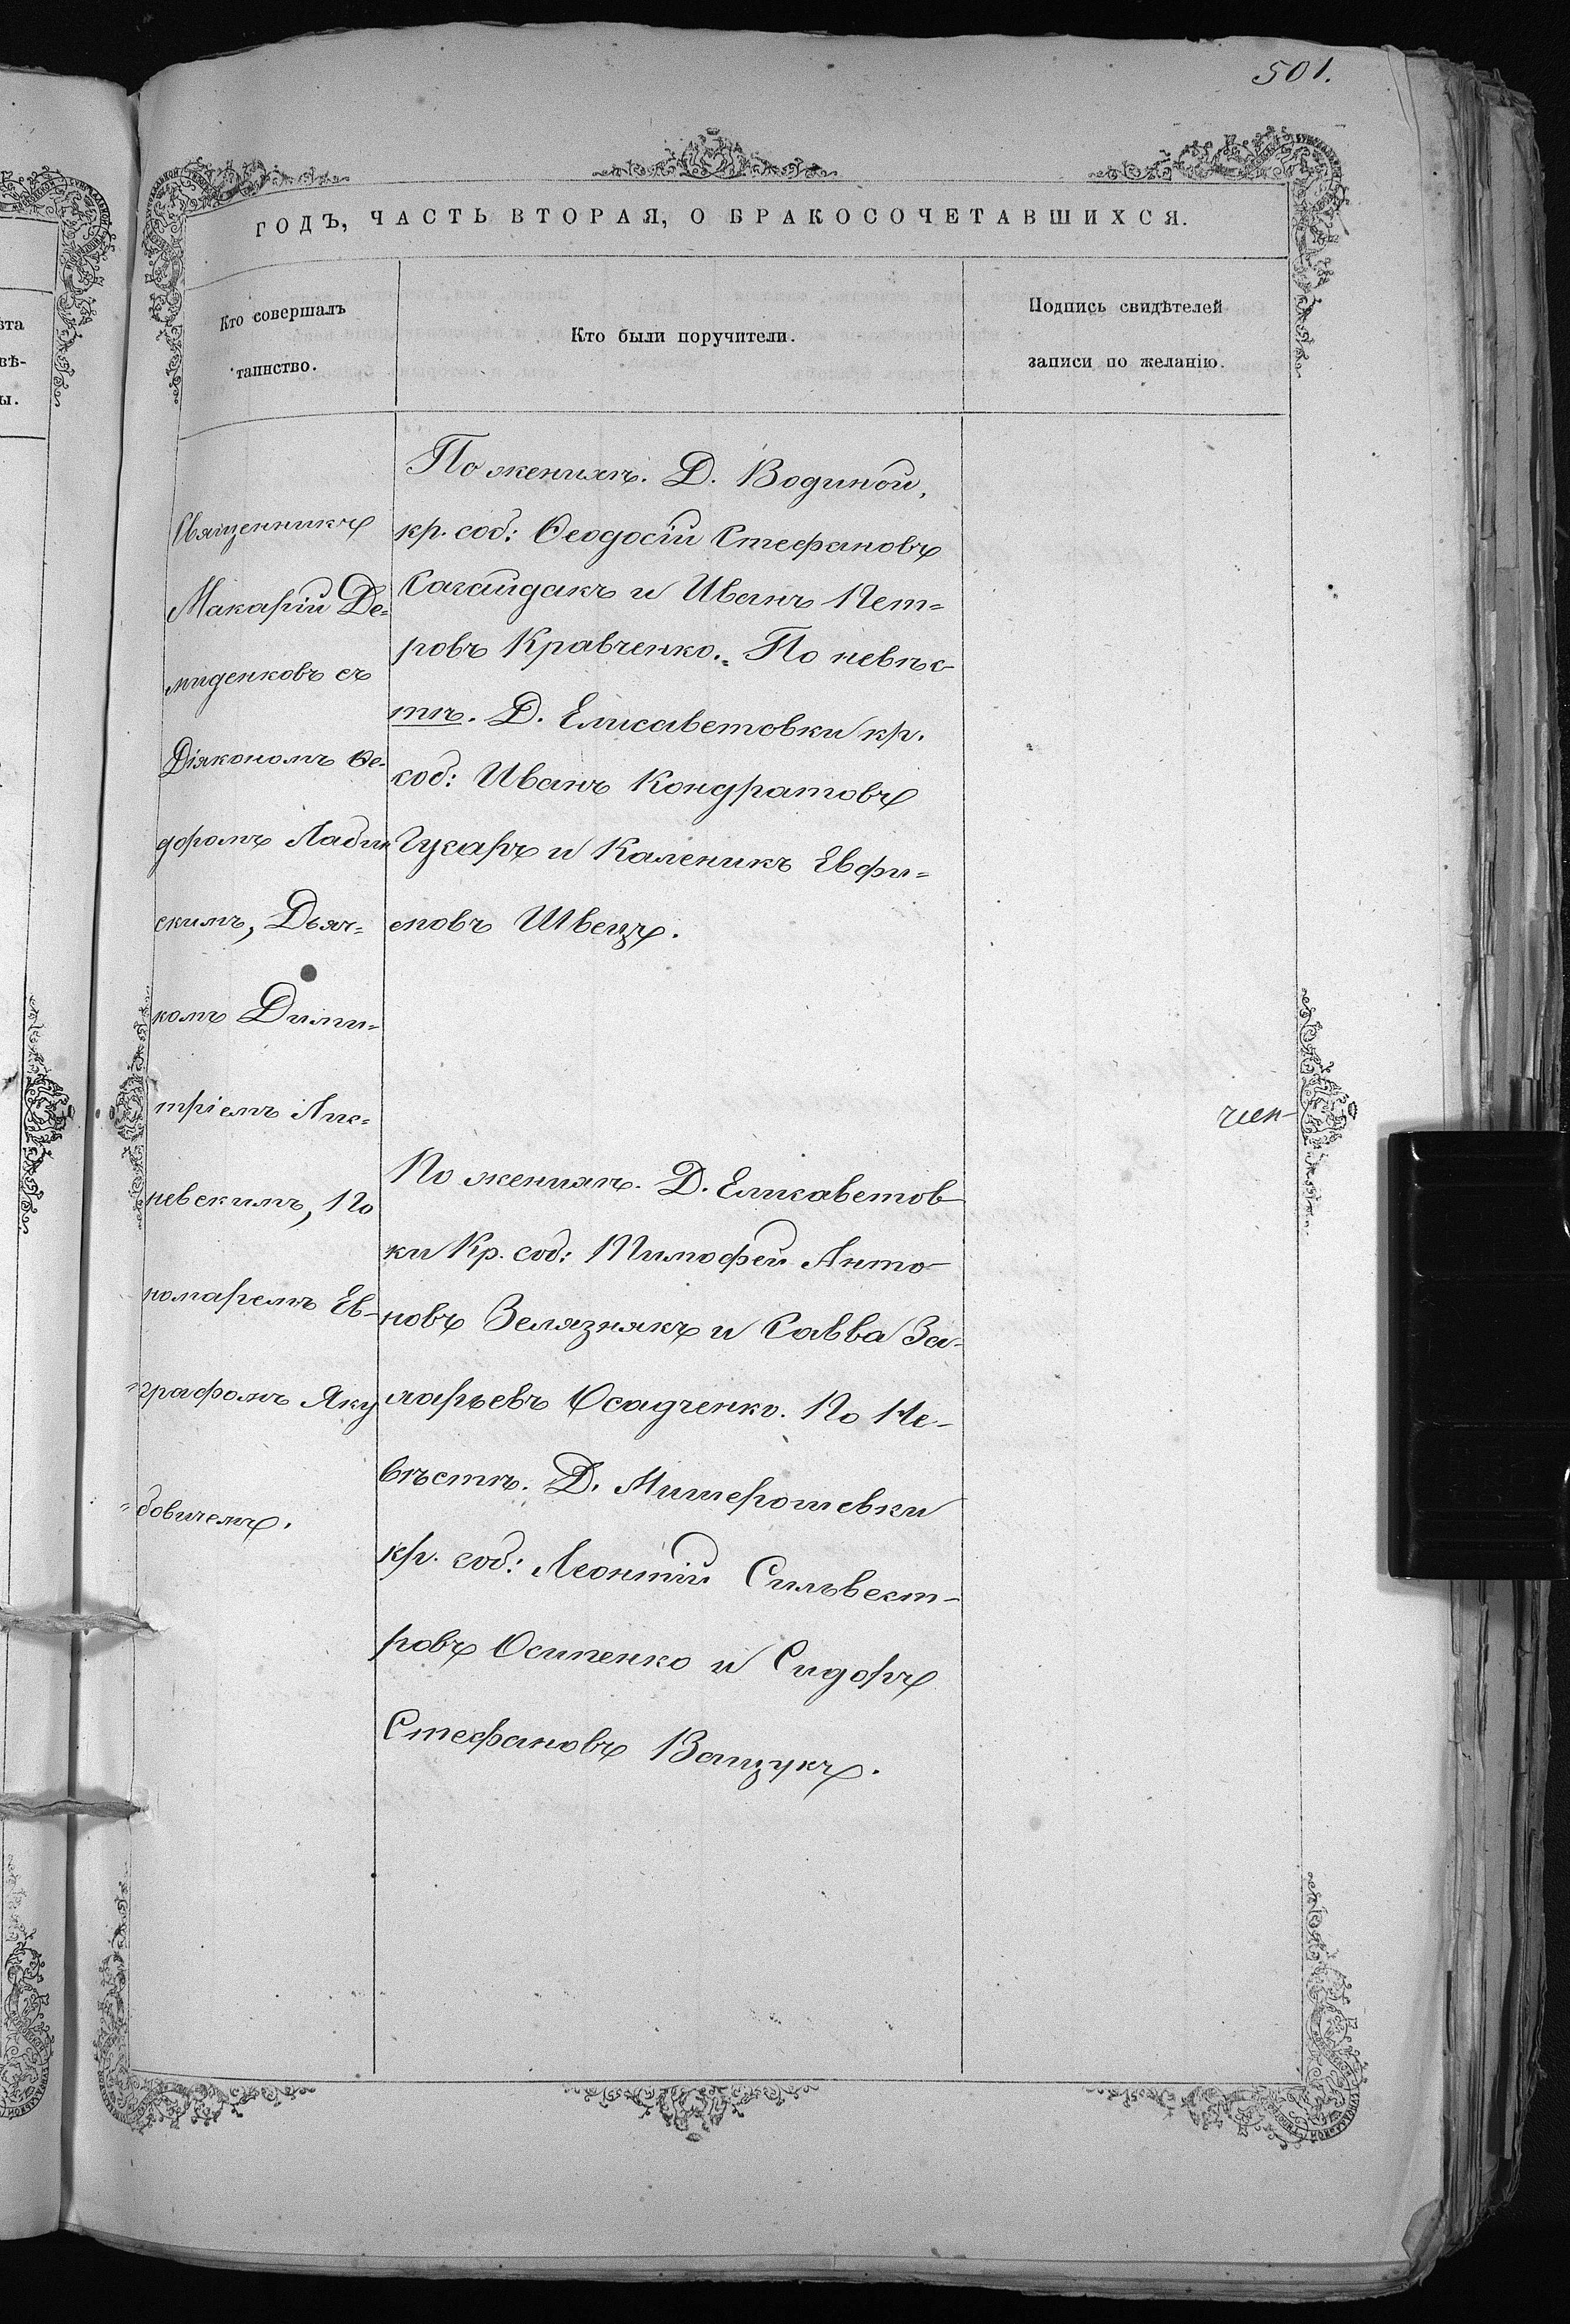 501.
ГОДЪ, ЧАСТЬ ВТОРАЯ, О БРАКОСОЧЕТАВШИХСЯ.
Кто совершалъ
таинство.
Кто были поручители.
Подпись свидѣтелей
записи по желанію.
Священникъ
Макарій Де-
миденковъ съ
Діякономъ Ѳе-
доромъ Лабин
скимъ, Дьяч-
комъ Дими-
тріемъ
невскимъ, По
номаремъ Ев-
графомъ Яку
бовичемъ.
По женихѣ. Д. Водиной,
кр. соб: Ѳеодосій Стефановъ
Сагайдакъ и Иванъ Пет-
ровъ Кравченко. По невѣс-
тѣ. Д. Елисаветовки кр.
соб: Иванъ Кондратовъ
Гусаръ и Каленикъ Евфи-
мовъ Швецъ.
По женихѣ. Д. Елисаветов-
ки Кр. соб: Тимофей Анто-
новъ Зелязнякъ и Савва За-
харьевъ Осадченко. По Не-
вѣстѣ. Д.
кр. соб: Леонтій Сильвест-
ровъ Осипенко и Сидоръ
Стефановъ Ващукъ.
ѣта
вѣ-
ы.